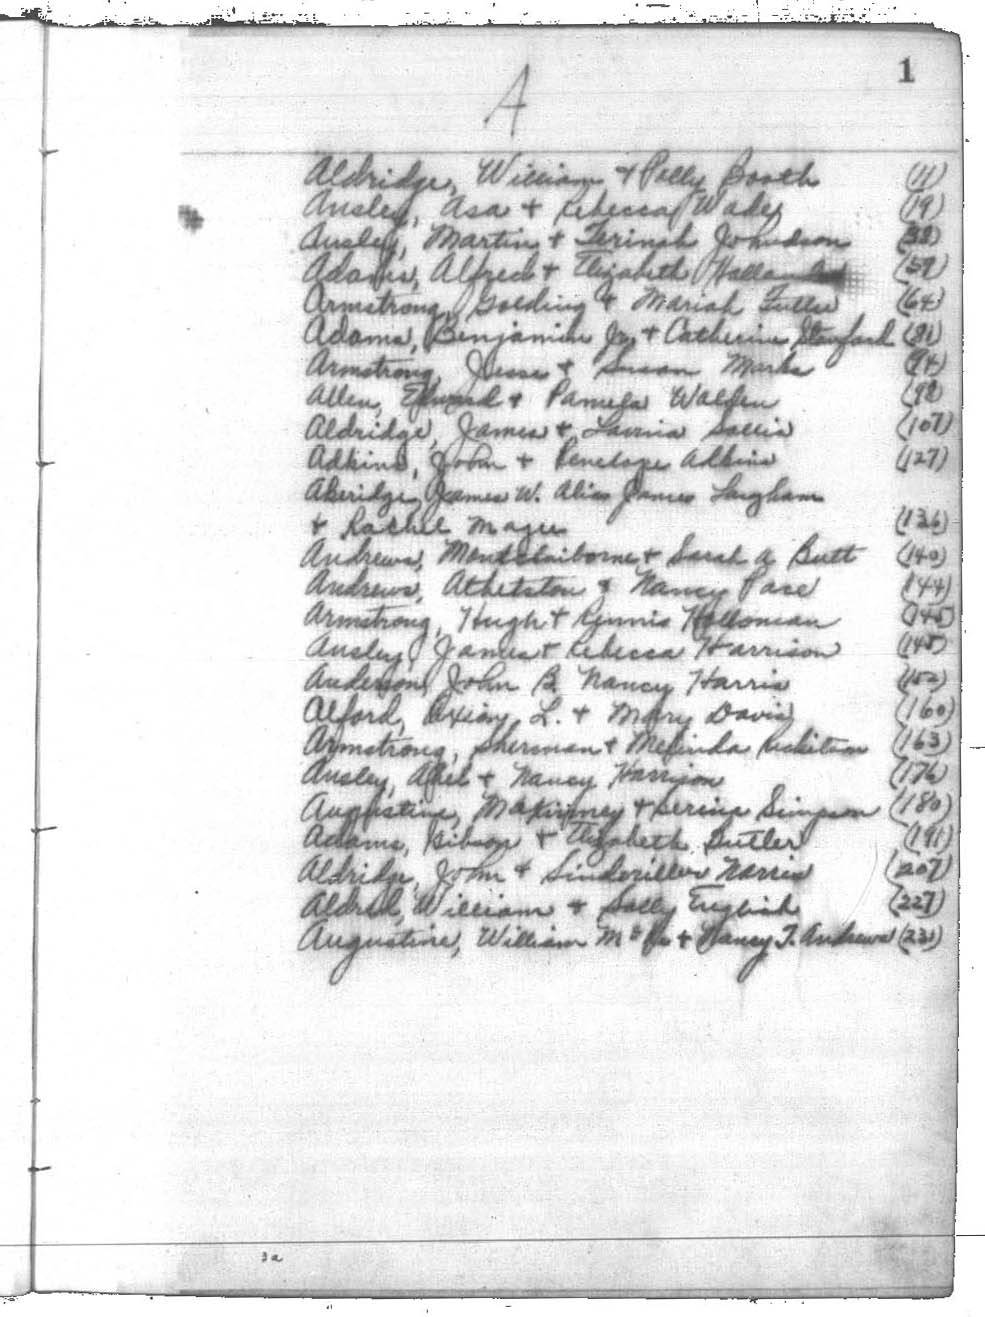 1
A
Aldridge, William + Polly Booth (11)
Ansley, Asa + Rebecca Wade (19)
Ansley, Martin + Johndson
Adams, Alfred + Elizabeth (59)
Armstrong, Golding + Mariah Fuller (64)
Adams, Benjamin Jr. + Catherine (81)
Armstrong, Jesse + Susan Marks (94)
Allen, Edward + Pamela Walden (98)
Aldridge, James + Lavina Sallis (107)
Adkins, John + Penelope Adkins (127)
James W. Alias James Langham
+ Rachel Magee (136)
Andrews, + Sarah A. Butt (140)
Andrews, Athelston + Nancy Pace (144)
Armstrong, Hugh + Holloman (145)
Ansley, James + Rebecca Harrison (145)
Anderson, John B. Nancy Harris (152)
Alford, L. + Mary Davis (160)
Armstrong, Sherman + Melinda (163)
Ansley, Abel + Nancy Harrison (176)
Augustine, + Simpson (180)
Adams, Gibson + Elizabeth Butler (191)
Aldridge, John + Norris (207)
Aldred, William + Sally English (227)
Augustine, William + Nancy T. Andrews (231)